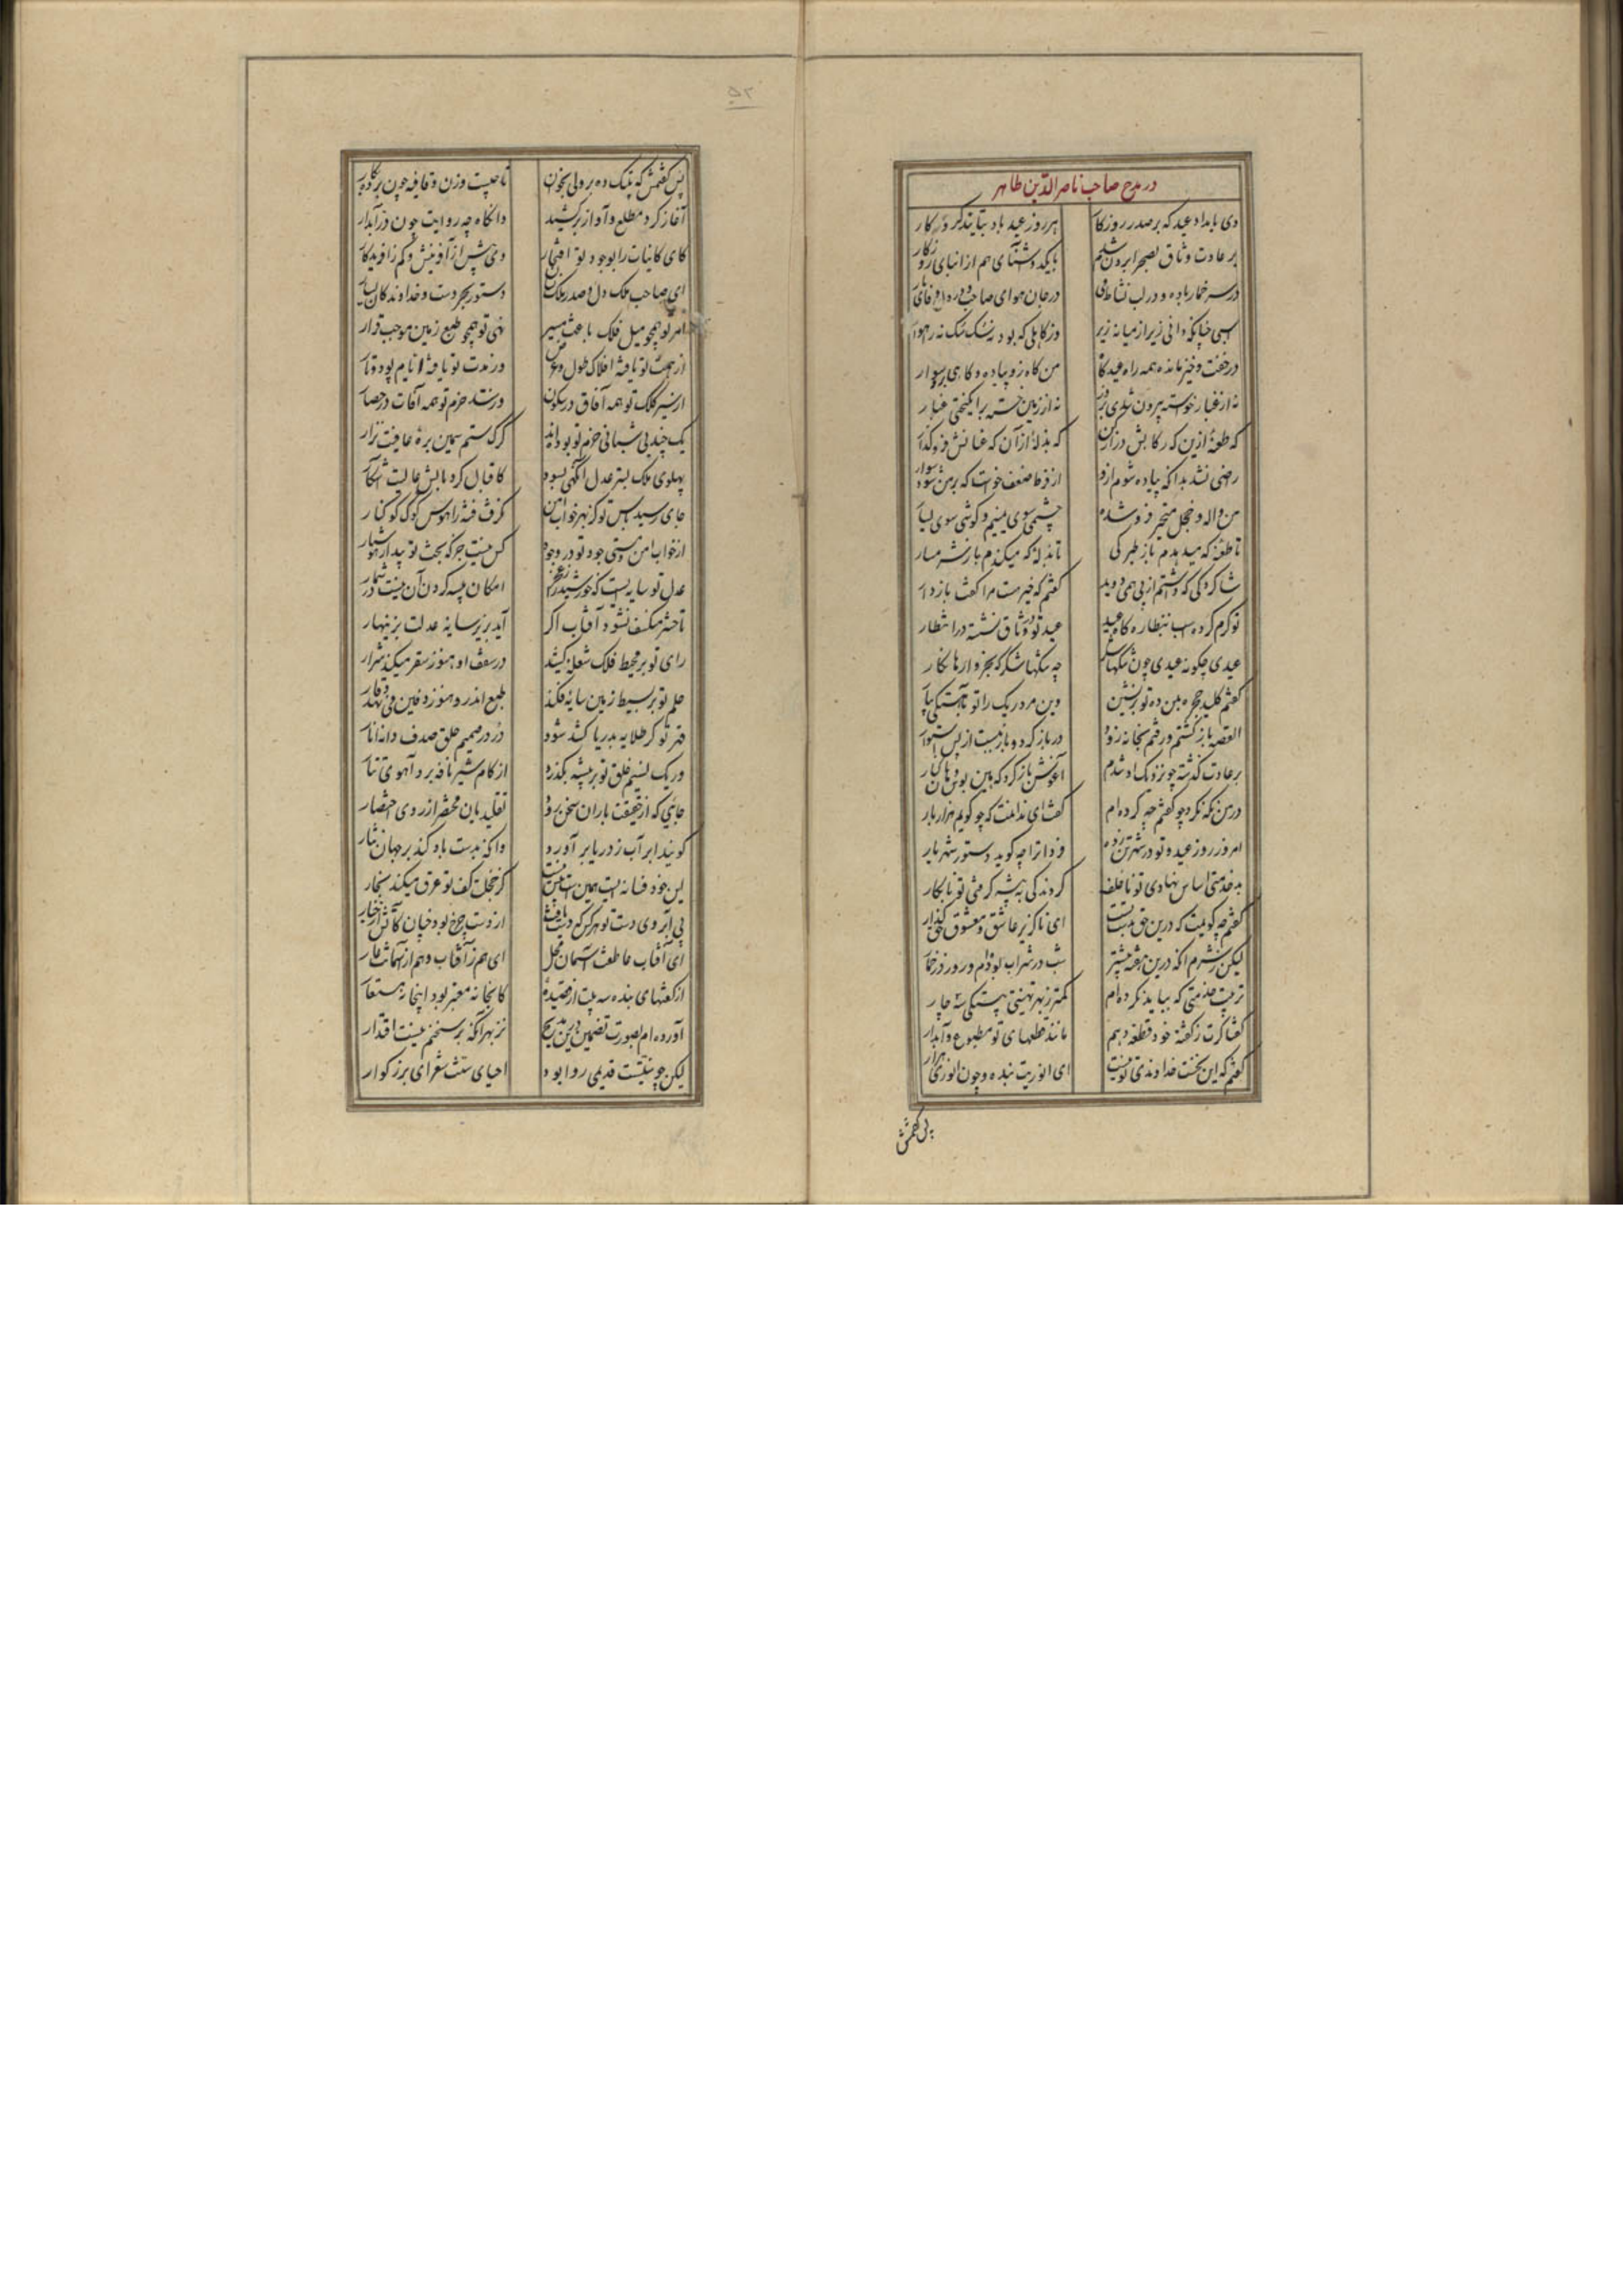 در مدح صاحب ناصر الدین طاهر
دی بامداد عید که بر صدر روزکار هر روز عید باد بتایید کردکار
بر عادت وثاق بصحرا برون شدم با یکدو آشنای هم از ابنای روزکار
در سر خمار باده و در لب نشاط می در جان هوای صاحب و در دل وفای
اسبی چنانکه دانی زیر از میانه زیر وز کاهلی که بود نه سکسک نه راهوار
در خفت و خیز مانده همه راه عیدکاه من کاه زو پیاده و کاهی برو سوار
نه از غبار خاسته بیرون شدی بزور نه از زمین خسته برانکیختی غبار
که طعنهٔ ازین که رکابش دراز کن که بذلهٔ از آن که عنانش فرو کذار
راضی نشد بدانکه پیاده شوم ازو از فرط ضعف خواست که بر من شود سوار
من واله و خجل متحیر فرو شده چشمی سوی یمینم و کوشی سوی یسار
تا طعنه که میدهدم باز طیرکی تا بذله که میکندم باز شرمسار
شاکردکی که داشتم از پی همی دوید کفتم که خیر هست مرا کفت باز دار
تو کرم کرده اسب بنظاره کاه عید عید تو در وثاق نشسته در انتظار
عیدی چکونه عیدی چون تنکها شکر چه تنکها شکر که بخروارها نکار
کفتم کلید حجره بمن ده تو برنشین وین مرده ریک را تو بآهستکی بیار
القصه باز کشتم و رفتم بخانه زود در باز کرد و باز ببست از پس استوار
بر عادت کذشته چو نزدیک او شدم آغوش باز کرد که هین بوس و هان کنار
در من نکه نکرد چو کفتم چه کرده ام کفت ای ندانمت که چو کویم هزار بار
امروز روز عید و تو در شهر تن زده فردا ترا چه کوید دستور شهریار
بد خدمتی اساس نهادی تو ناخلف کردندکی به پیشه کرفتی تو نابکار
کفتم چه کویمت که درین حق بدست تست ای ناکزیر عاشق و معشوق حق کذار
لیکن ز شرم آنکه درین هفته بیشتر شب در شراب بوده ام و روز در خمار
ترتیب خدمتی که بیاید نکرده ام کمتر ز بهر تهنیتی بیتکی سه چار
کفتا کرت ز کفته خود قطعه دهم مانند قطعهای تو مطبوع و آبدار
کفتم که این نخست خداوندی تو نیست ای انوریت بنده و چون انوری هزار
پس کفتمش
پس کفتمش که نیک ده برولی بخوان تا چیست وزن و قافیه چون برده بکار
آغاز کرد مطلع و آواز برکشید وانکاه چه روایت چون در آبدار
کای کاینات را بوجود تو افتخار وی بیش از آفرینش و کم ز آفریدکار
ای صاحب ملک دل و صدر ملک نشان دستور بحر دست و خداوند کان یسار
امر تو همچو میل فلک باعث مسیر نهی تو همچو طبع زمین موجب قرار
از همت تو یافته افلاک طول و عرض وز مدت تو یافته ایام پود و تار
از سیر کلک تو همه آفاق در سکون وز سد حزم تو همه آفات در حصار
یک چند بی شبانی حزم تو بوده اند کرک ستم سمین برهٔ عافیت نزار
پهلوی ملک بستر عدل آنکهی بسود کاقبال کرد بالش عالیت آشکار
جای رسید پاس تو کز بهر خواب امن بکرفت فتنه را هوس کوک و کوکنار
از خواب امن و مستی جود تو در وجود کس نیست جز که بخت تو بیدار و هوشیار
عدل تو سایه ایست که خورشید را ز عجز امکان پیسه کردن آن نیست در شمار
تا حشر منکسف نشود آفتاب اکر آید بزیر سایه عدلت بزینهار
رای تو بر محیط فلک شعله کشید در سقف او هنوز سفر میکند شرار
حلم تو بر بسیط زمین سایه فکند طبع اندرو هنوز دفین می نهد وقار
قهر تو کر طلایه بدریا کشد شود در در صمیم حلق صدف دانه انار
ور یک نسیم خلق تو بر بیشه بکذرد از کام شیر نافه برد آهوی تتار
جایی که از حقیقت باران سخن رود تقلید یان مختصر از روی اختصار
کویند ابر آب ز دریا بر آورد وانکه بدست باد کند بر جهان نثار
این خود فسانه ایست همین است و بیش نیست کز خجلت کف تو عرق میکند بحار
بی آبروی دست تو هر کس که دست یافت از دست چرخ بود چنان کآتش از چنار
ای آفتاب عاطفت آسمان محل ای هم ز آفتاب و هم از آسمانت عار
از کفتهای بنده سه بیت از قصیدهٔ کانجا نه معتبر بود اینجا نه مستعار
آورده ام بصورت تضمین درین مدیح نز بهر آنکه بر سخنم نیست اقتدار
لیکن چو سنتیست قدیمی روا بود احیای سنت شعرای بزرکوار
۵۲